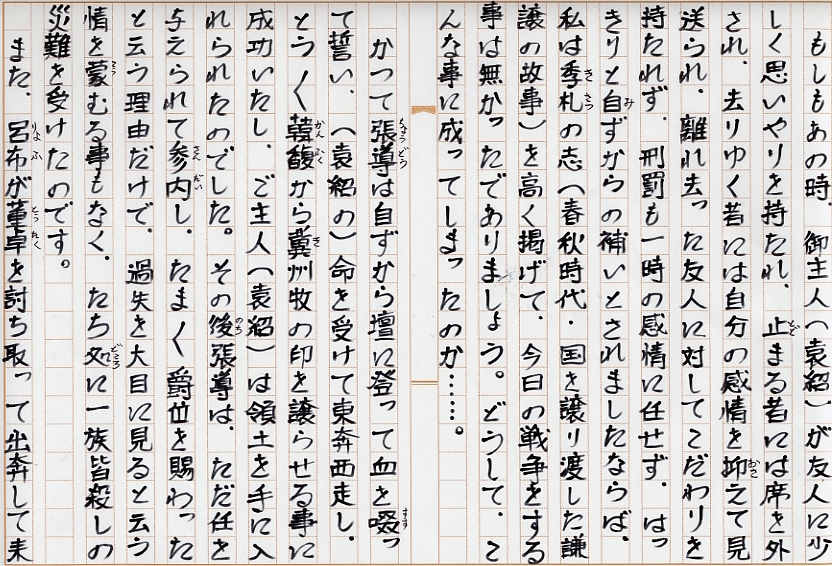 もしもあの時、御主人(袁紹)が友人に少
しく思いやりを持たれ、止まる者には席を外
され、去りゆく者には自分の感情を抑えて見
送られ、離れ去った友人に対してこだわりを
持たれず、刑罰も一時の感情に任せず、はっ
きりと自ずからの補いとされましたならば、
私は季札の志(春秋時代・国を譲り渡した謙
譲の故事)を高く掲げて、今日の戦争をする
事は無かったでありましょう。どうして、こ
んな事に成ってしまったのか……。
かつて張導は自ずから壇に登って血を啜っ
て誓い、(袁紹の)命を受けて東奔西走し、
とう〱韓馥から冀州牧の印を譲らせる事に
成功いたし、ご主人(袁紹)は領土を手に入
れられたのでした。その後張導は、ただ任を
与えられて参内し、たま〱爵位を賜わった
と云う理由だけで、過失を大目に見ると云う
情を蒙むる事もなく、たち処に一族皆殺しの
災難を受けたのです。
また、呂布が董卓を討ち取って出奔して来